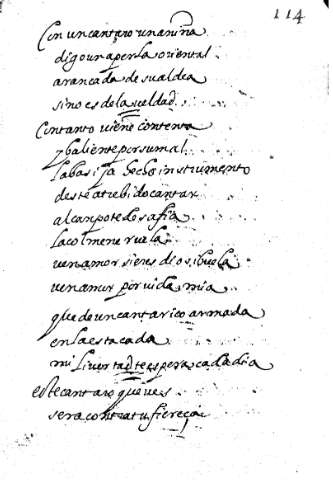 114
Con un cantaro una niña
digo una perla oriental
arancada de su aldea
sino es de la
Con tanto viene contenta
y baliente por su mal
la basija hecho instrumento
deste atrebido cantar
al canpo te desafia
la colmeneruela
ven amor si eres dios i buela
ven amor por vida mia
que de un cantarico armada
en la estacada
mi livertad te espera cada dia
este cantaro que ves
sera contra tu fiereça